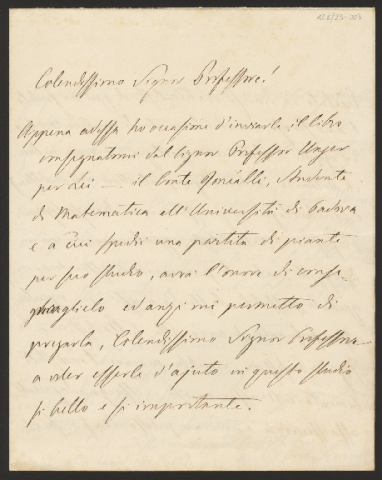 Colendissimo Signor Professore!
Appena adesso ho occasione d'inviarle il libro
consegnatomi dal Signor Professor Unger
per Lei — il Conte Studente
di Matematica all'Università di Padova
e a cui spedii una partita di piante
per suo studio, avrà l'onore di conse-
gnarglielo ed anzi mi permetto di
pregarla, Colendissimo Signor Professore
a voler esserle d'ajuto in questo studio
sì bello e sì importante.